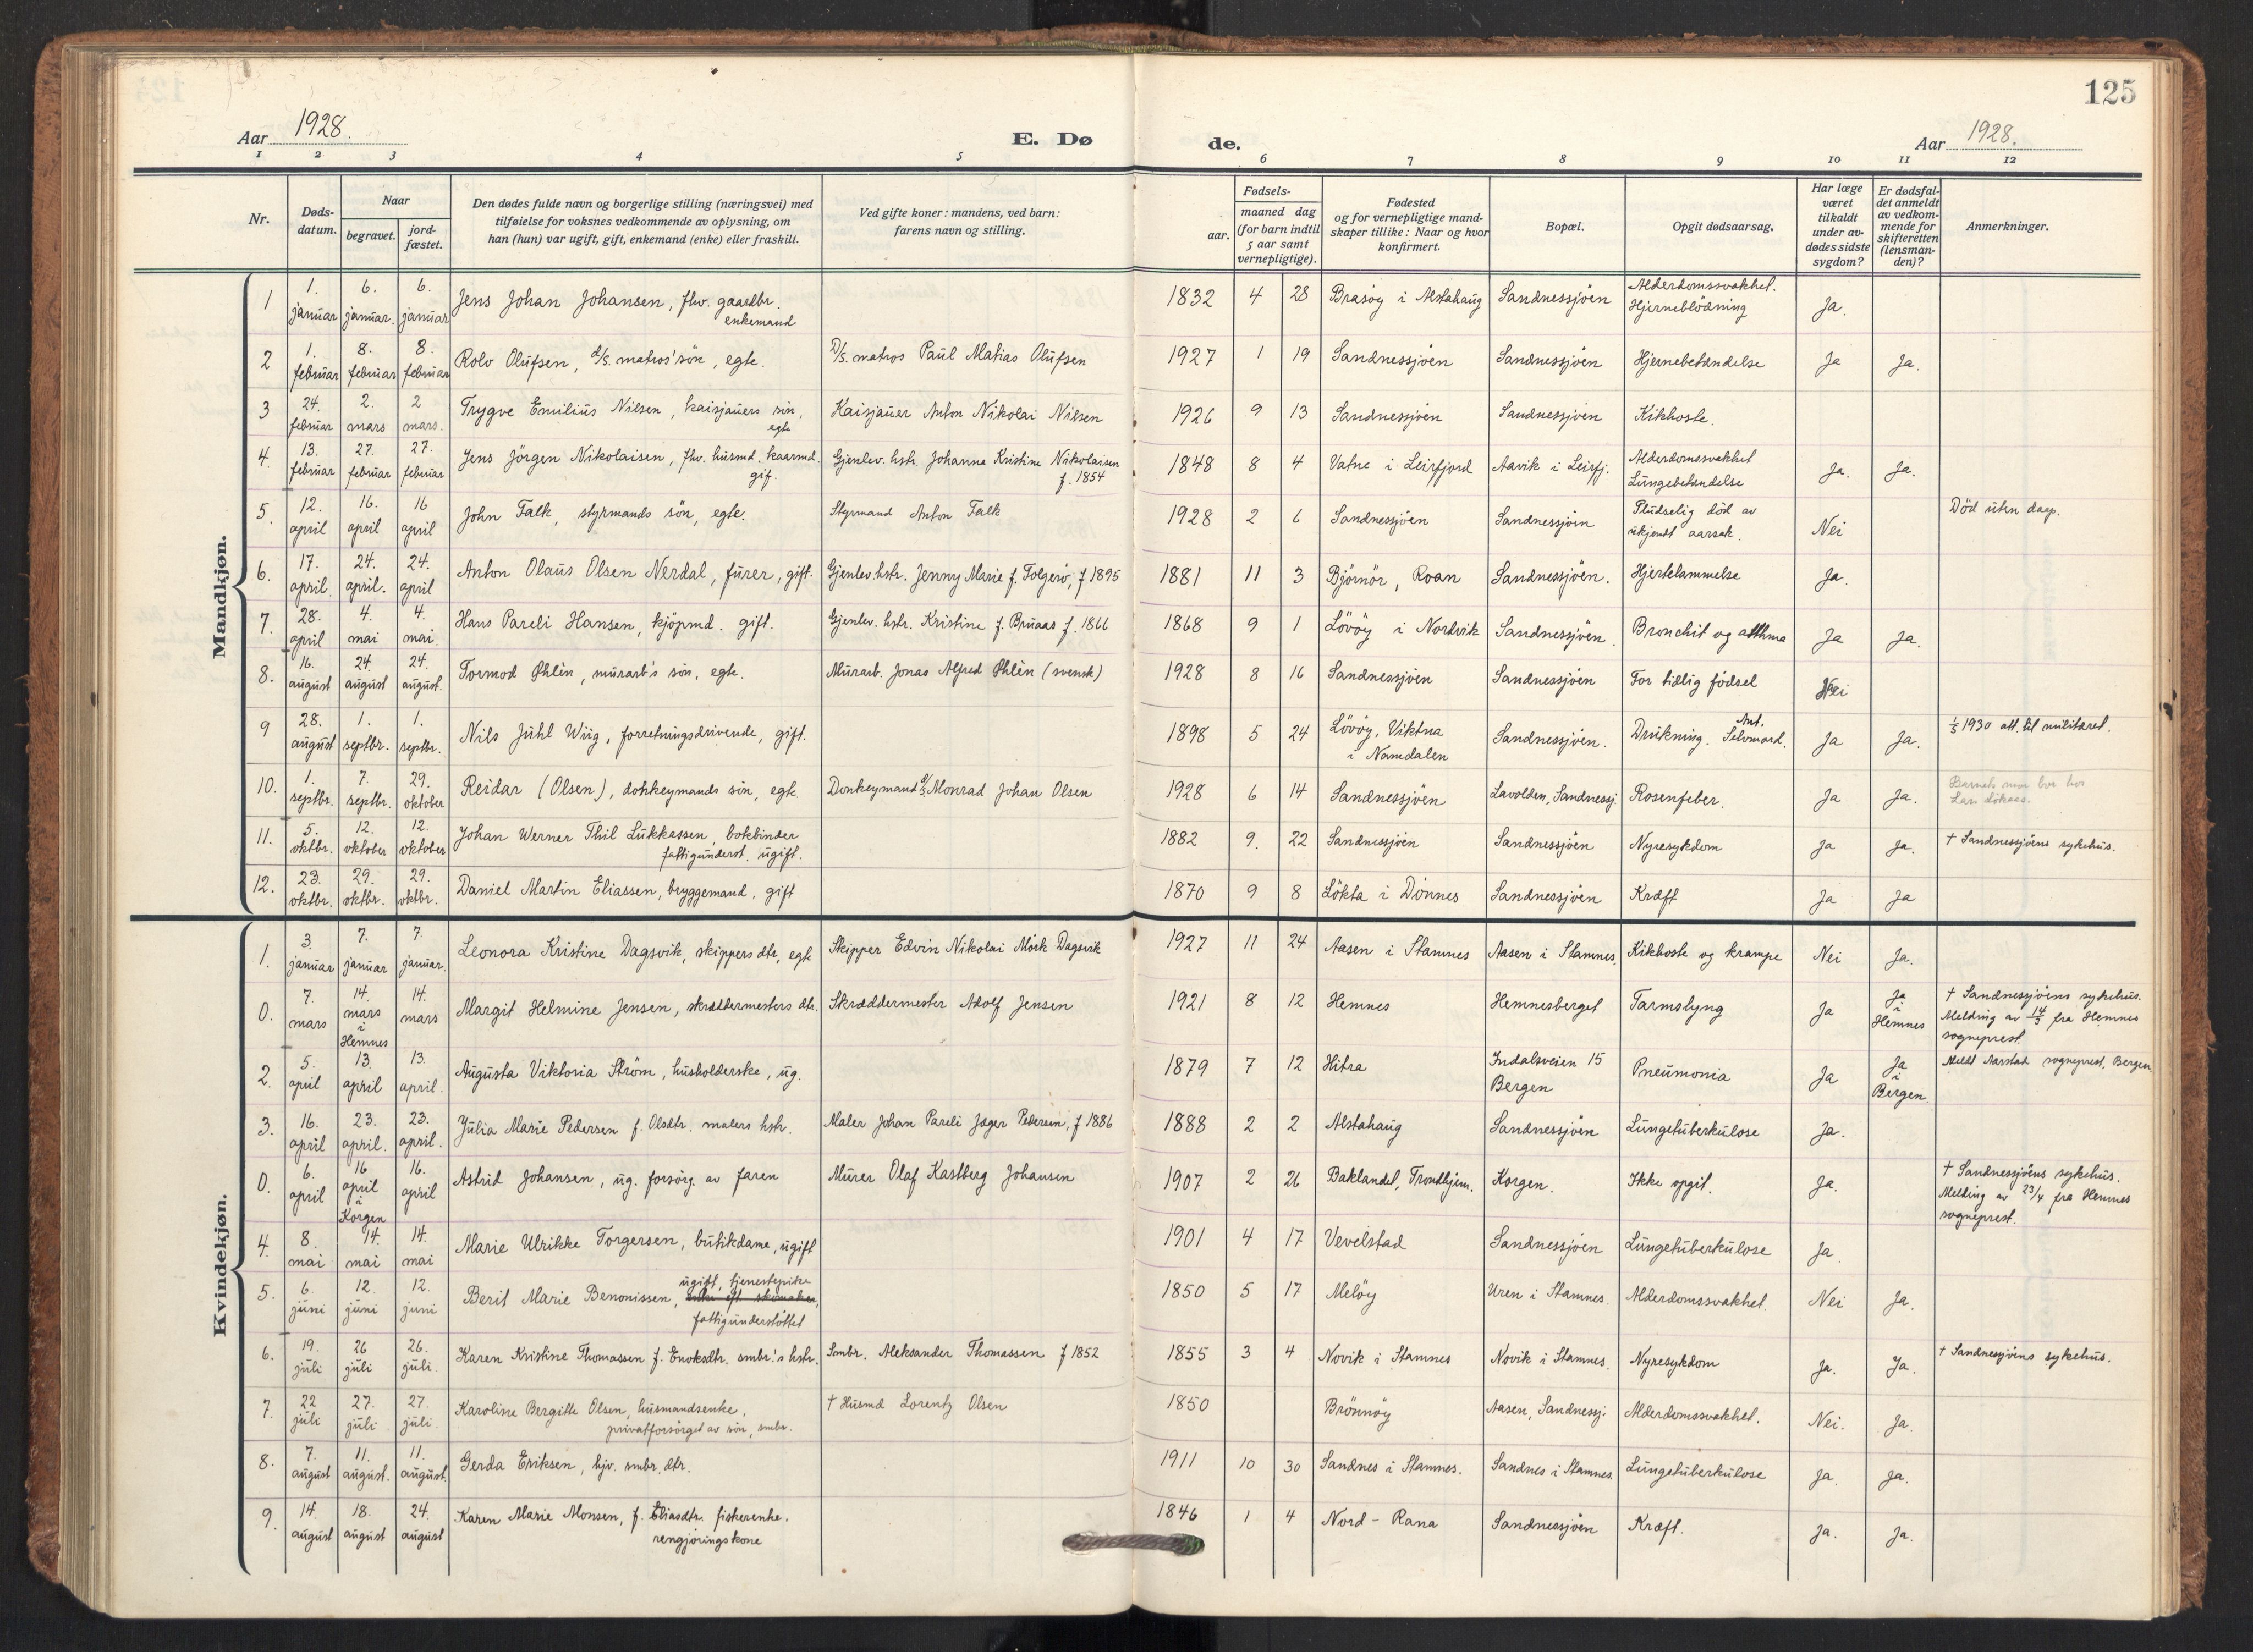 125
Aar 1928.
E. Dø
de.
Aar 1928.
1 2 3 4 5 6 7 8 9 10 11 12
Nr.
Døds-
datum.
Naar
begravet.
jord-
fæstet.
Den dødes fulde navn og borgerlige stilling (næringsvei) med
tilføielse for voksnes vedkommende av oplysning, om
han (hun) var ugift, gift, enkemand (enke) eller fraskilt.
Ved gifte koner: mandens, ved barn:
farens navn og stilling.
Fødsels-
aar.
maaned dag
(for barn indtil
5 aar samt
vernepligtige).
Fødested
og for vernepligtige mand-
skaper tillike: Naar og hvor
konfirmert.
Bopæl.
Opgit dødsaarsag.
Har læge
været
tilkaldt
under av-
dødes sidste
sygdom?
Er dødsfal-
det anmeldt
av vedkom-
mende for
skifteretten
(lensman-
den)?
Anmerkninger.
Mandkjøn.
1 1. januar 6. januar. 6. januar Jens Johan Johansen, fhv. gaardbr. enkemand 1832 4 28 Brasøy i Alstahaug Sandnessjöen Alderdomssvakhet. Hjerneblödning Ja.
2 1. februar 8. februar 8. februar Rolv Olufsen, d/s. matros' sön, egte. D/s. matros Paul Matias Olufsen 1927 1 19 Sandnessjöen Sandnessjöen Hjernebetændelse Ja Ja.
3 24. februar 2. mars 2 mars. Trygve Emilius Nilsen, kaisjauers sön, egte Kaisjauer Anton Nikolai Nilsen 1926 9 13 Sandnessjöen Sandnessjöen Kikhoste.
4. 13. februar 27. februar 27. februar Jens Jörgen Nikolaisen, fhv. husmd. kaarmd. gif. Gjenlev. hstr. Johanna Kristine Nikolaisen f. 1854 1848 8 4 Vatne i Leirfjord Aavik i Leirfj. Alderdomssvakhet Lungebetændelse Ja. Ja.
5. 12. april 16. april 16 april John Falk, styrmands sön, egte. Styrmand Anton Falk 1928 2 6 Sandnessjöen Sandnessjöen Pludselig död av ukjendt aarsak. Nei Död uten daap.
6. 17. april. 24. april. 24. april Anton Olaus Olsen Nerdal, furer, gift. Gjenlev. hstr. Jenny Marie f. Folgerö, f 1895 1881 11 3 Björnör, Roan Sandnessjöen. Hjertelammelse Ja.
7. 28. april 4. mai 4. mai. Hans Pareli Hansen, kjöpmd. gift. Gjenlev. hstr. Kristine f. Bruaas f. 1866 1868 9 1 Lövöy i Nordvik Sandnessjöen. Bronchit og asthma Ja Ja.
8. 16. august 24. august 24. august. Tormod Øhlèn, murarb's sön, egte. Murarb. Jonas Alfred Øhlèn (svensk) 1928 8 16 Sandnessjöen Sandnessjöen For tidlig födsel Nei
9 28. august 1. septbr. 1. septbr. Nils Juhl Wiig, forretningsdrivende, gift. 1898 5 24 Lövöy, Viktna i Namdalen Sandnessjöen. Drukning. Ant. Selvmord. Ja Ja. 1/5 1930 att. til militæret.
10. 1. septbr. 7. septbr. 29. oktober Reidar (Olsen), donkeymands sön, egte. Donkeymand d/s Monrad Johan Olsen 1928 6 14 Sandnessjöen Lavolden, Sandnessj. Rosenfeber. Ja Ja. Barnets mor bor hos Lars
11. 5. oktbr. 12. oktober 12. oktober Johan Werner Thil Lukkassen, bokbinder fattigunderst. ugift. 1882 9. 22 Sandnessjöen Sandnessjöen Nyresykdom Ja Ja. † Sandnessjöens sykehus.
12. 23. oktbr. 29. oktbr. 29. oktbr. Daniel Martin Eliassen, bryggemand, gift 1870 9 8 Lökta i Dönnes Sandnessjöen Kræft Ja Ja
Kvindekjøn.
1. 3. januar 7. januar 7. januar. Leonora Kristine Dagsvik, skippers dtr, egte Skipper Edvin Nikolai Mörk Dagsvik 1927 11 24 Aasen i Stamnes Aasen i Stamnes. Kikhoste og krampe Nei Ja.
0. 7. mars 14. mars i Hemnes 14. mars Margit Helmine Jensen, skræddermesters dtr. Skræddermester Adolf Jensen 1921 8 12 Hemnes Hemnesberget Tarmslyng Ja Ja i Hemnes † Sandnessjöens sykehus. Meldring av 14/3 fra Hemnes sogneprest.
2. 5. april 13. april 13. april. Augusta Viktoria Ström, husholderske, ug. 1879 7 12 Hitra Indalsveien 15 Bergen Pneumonia Ja Ja i Bergen. Meldt Aarstad sogneprest, Bergen.
3. 16. april 23. april. 23. april. Julia Marie Pedersen f. Olsdtr. malers hstr. Maler Johan Pareli Jæger Pedersen, f 1886 1888 2 2 Alstahaug Sandnessjöen Lungetuberkulose Ja.
0. 6. april 16 april i Korgen 16. april Astrid Johansen, ug. forsörg. av faren Murer Olaf Kastberg Johansen 1907 2 26 Baklandet, Trondhjem. Korgen. Ikke opgit. Ja. † Sandnessjöens sykehus. Meldring av 23/4 fra Hemnes sogneprest.
4. 8. mai 14. mai 14. mai Marie Ulrikke Torgersen, butikdame, ugift 1901 4 17 Vevelstad Sandnessjöen Lungetuberkulose Ja.
5. 6. juni 12. juni 12. juni Berit Marie Benonissen, ugift, tjenestepike fattigunderstöttet 1850 5 17 Melöy Uren i Stamnes. Alderdomssvakhet. Nei Ja.
6. 19. juli 26 juli 26. juli. Karen Kristine Thomassen f. Enoksdtr. smbr.'s hstr. Smbr. Aleksander Thomassen f 1852 1855 3 4 Novik i Stamnes Novik i Stamnes. Nyresykdom Ja. Ja. † Sandnessjöens sykehus.
7. 22 juli 27. juli 27. juli. Karoline Bergitte Olsen, husmandsenke, privatforsörget av sön, smbr. † Husmd Lorentz Olsen 1850 Brönnöy Aasen, Sandnessj. Alderdomssvakhet. Nei. Ja.
8. 7. august 11. august. 11. august. Gerda Eriksen, hjv. smbr. dtr. 1911 10 30 Sandnes i Stamnes. Sandnes i Stamnes. Lungetuberkulose Ja. Ja.
9. 14. august 18. august 24. august Karen Marie Monsen, f. Eliasdtr. fiskerenke. rengjöringskone 1846 1 4 Nord-Rana Sandnessjöen Kræft. Ja. Ja.